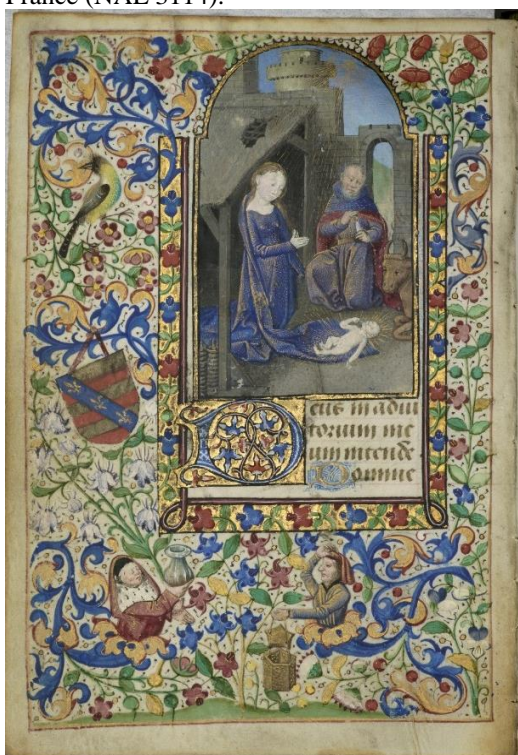 France (NAL 3114).
Deus in adiu
torium me
um intende
Domine